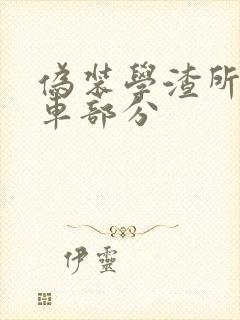 偽裝學渣所
車部分
伊靈